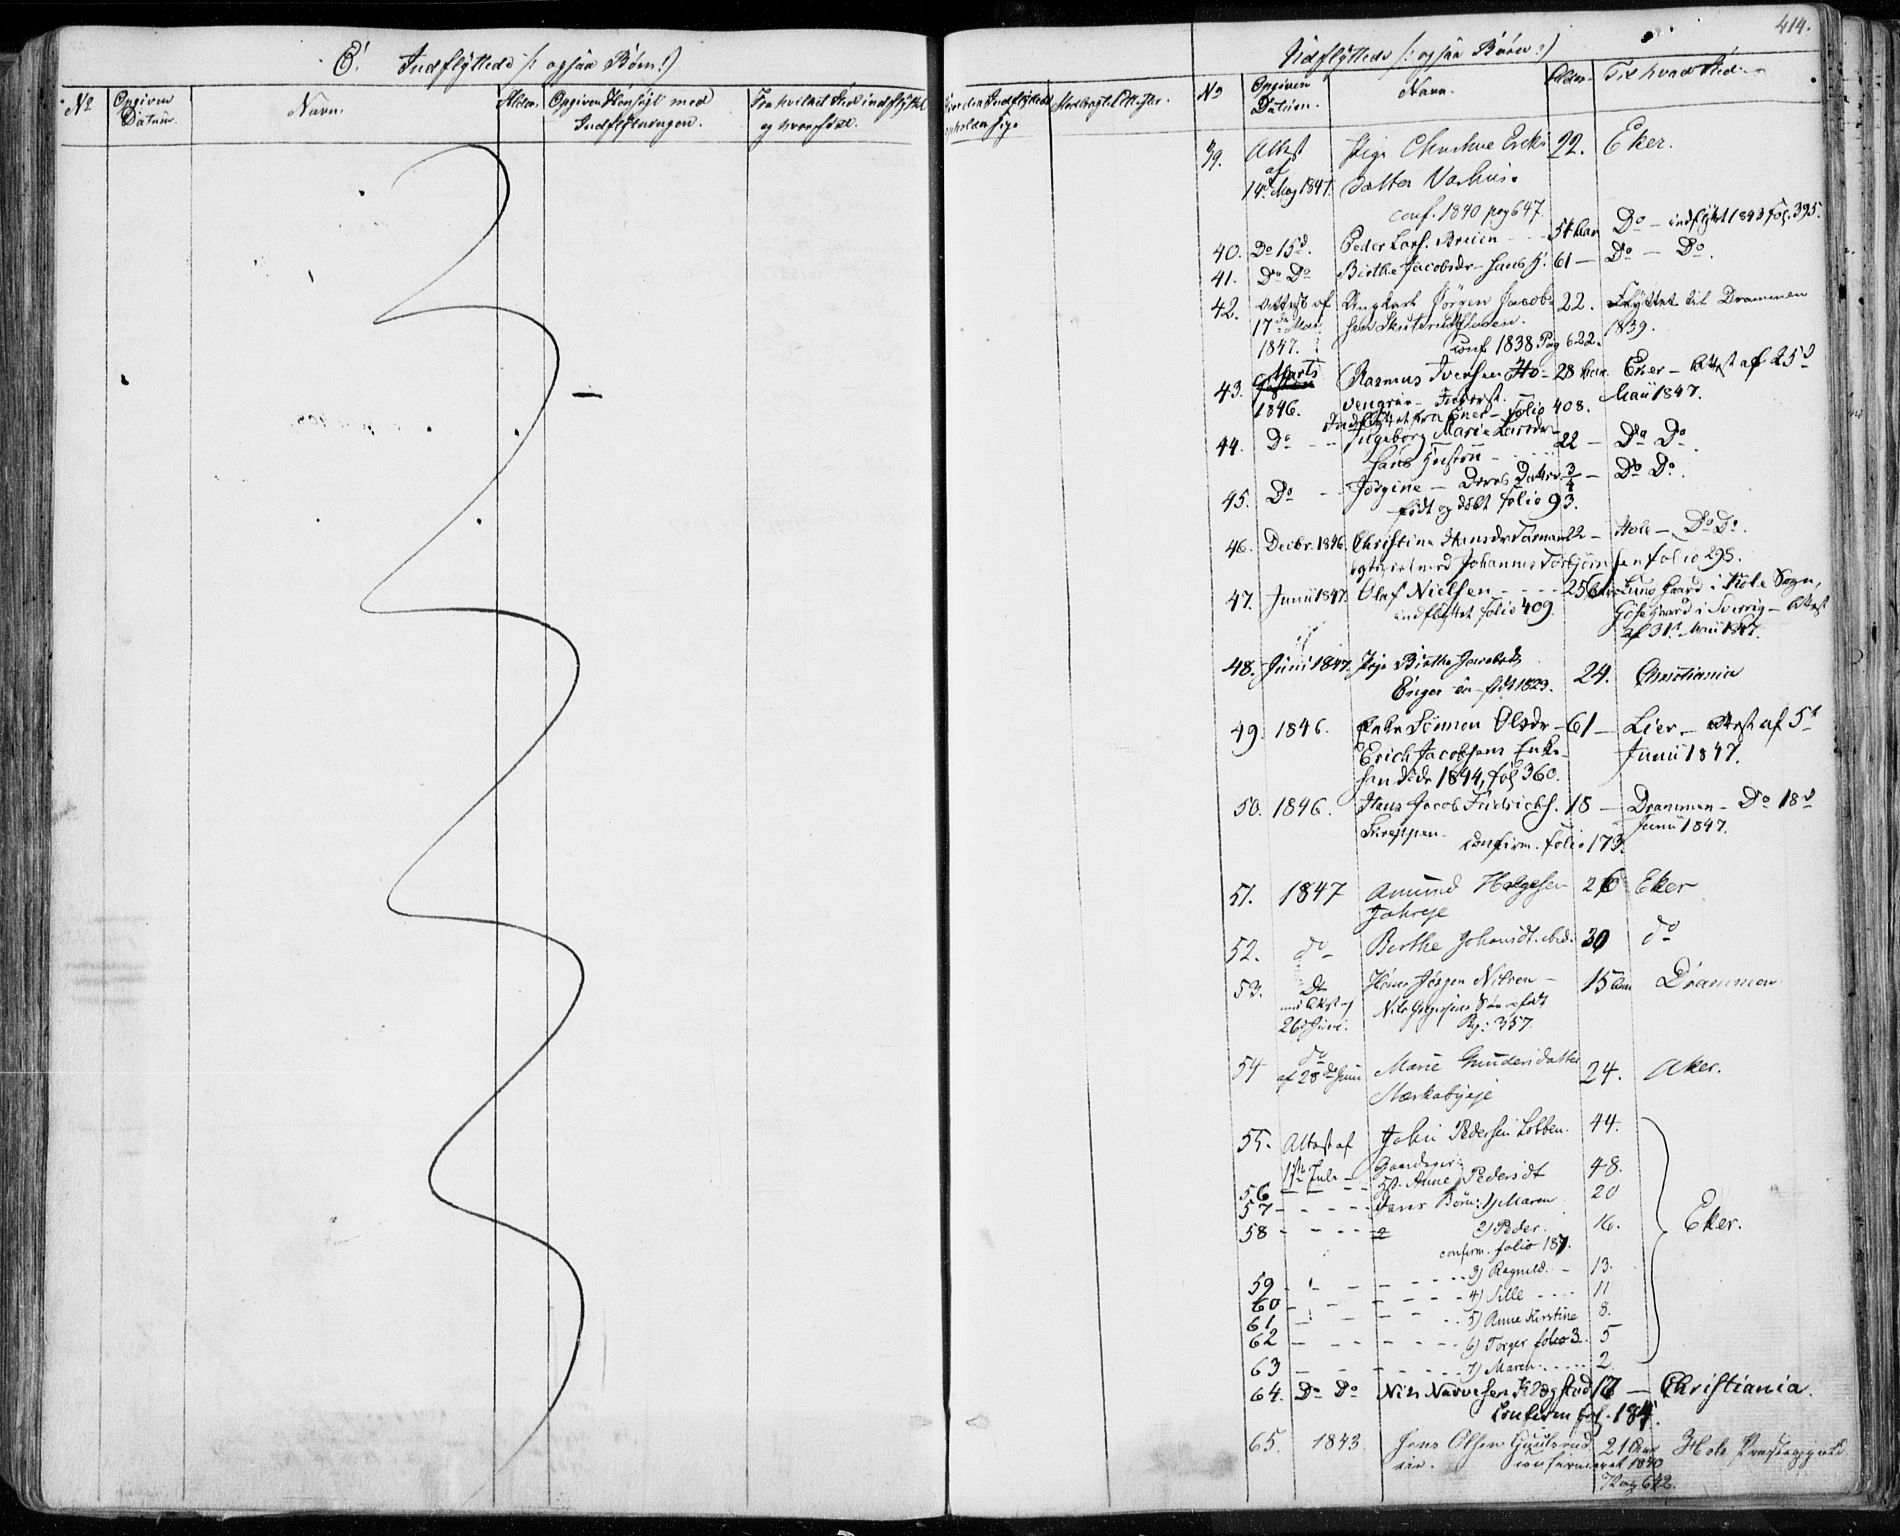 414.
E. Indflyttede (: ogsaa Børn :)
Udflyttede (: ogsaa Børn :)
No
Opgiven Datum.
Navn.
Alder.
Opgiven Hensigt med Indflytningen.
Fra hvilket Sted indflyttet og hvorhen.
Hvor den Indflyttede opholder sig.
Medbragte Attester.
No
Opgiven Datum.
Navn.
Alder.
Til hvad Sted.
39. Attest Pige Erichs 22. Eker.
af
14de May 1847. datter
conf. 1840 pag 647.
40. Do 15d. Peder Lars. Breien 54 Aar Do - indflyttet 1843 Fol. 395.
41. Do Do Birthe Jacobsdr - hans H. 61 - Do - Do.
42. Attest af Ungkarl Jørgen Jacob- 22. Flyttet til Drammen
17de Mai sen 1839.
1847. Conf 1838 Pag 622.
43. Marts Rasmus Iversen Ho- 28 Aar. Eker - Attest af 25d
1846. vengrav - Inderst. Maii 1847.
Indflyttet fra Eker - folio 408.
44. Do - - Ingeborg Marie Larsdr - 22 - Do Do
hans Hustru
45. Do - - Jørgine - Deres Datter 3/4 - Do Do.
født og døbt folio 93.
46. Decbr. 1846. Christine Hansdr 22 - Hole - Do Do.
egteviet med Johannes Torbjørnsen folio 298.
47. Junii 1847. Olaf Nielsen - - - - 25 Gaard i Hole Sogn,
indflyttet folio 409. i Sverrig - Attest
af 31te Maii 1847.
48. Juni 1847. Pige Birthe Jacobsdr 24. Christiania
Enger eie - født 1823.
49. 1846. Enke Simen Olsdr - 61 - Lier - Attest af 5t
Erich Jacobsens Enke - Junii 1847.
han døde 1844, fol 360.
50. 1846. Hans Jacob Fridrichs. 18 - Drammen - Do 18d
Junii 1847.
confirm. folio 173.
51. 1847 Amund Helgesen 26 Eker
52. do Berthe Johansdt. ibid. 30 do
53. Do Hans Jørgen Nilsen - 15 Aar Drammen
med Attest af Nils Søn født
26d Juni. Pag: 357.
54 do Marie Gundersdatter 24. Aker.
af 28de Juni
55. Attest af John Pedersen Lobben. 44.
1ste Juli - Gaardeier.
56 - - - - H. Anne Pedersdt 48.
57 - - - - - deres Børn: 1) Maren 20
58 - - - - 2) Peder. 16. Eker.
confirm. folio 187.
59 - - - - - 3) Ragnild. - 13.
60 - - - - - 4) Sille - - - - 11
61 - - - - - 5) Anne Kirstine 8.
62 - - - - - 6) Torger folio 3. 5
63 - - - - - 7) Maren. . . . . 2
64. Do Do Nils Narvesen 17 - Christiania.
Confirm fol. 184.
65. 1843. Jens Olsen 21 Aar Hole Præstegjeld.
eie. confirmeret 1840
Pag 642.